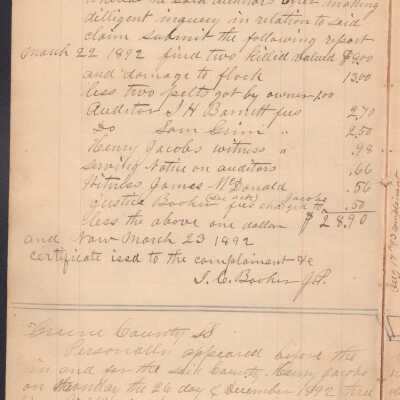 whereas he said auditors after making
diligent inquery in relation to said
claim submit the following report
March 22 1892 find two kild valued $9.00
and damage to flock 13.00
less two pelts got by owner 1.00
Auditor J H Barnett fees 2.70
Do Sam Grim " 2.50
Henry Jacobs witness " .98
serving Notice on auditors .66
Witness James McDonald .56
Justice Booher fees charged to Jacobs .50
less the above one dollar $28.90
and Now March 23 1892
certificate issd to the complainant &c
J. C. Booher J.P.
Greene County SS
Personally appeared before the
in and for the said County Henry Jacobs
on Monday the 26 day of December 1892